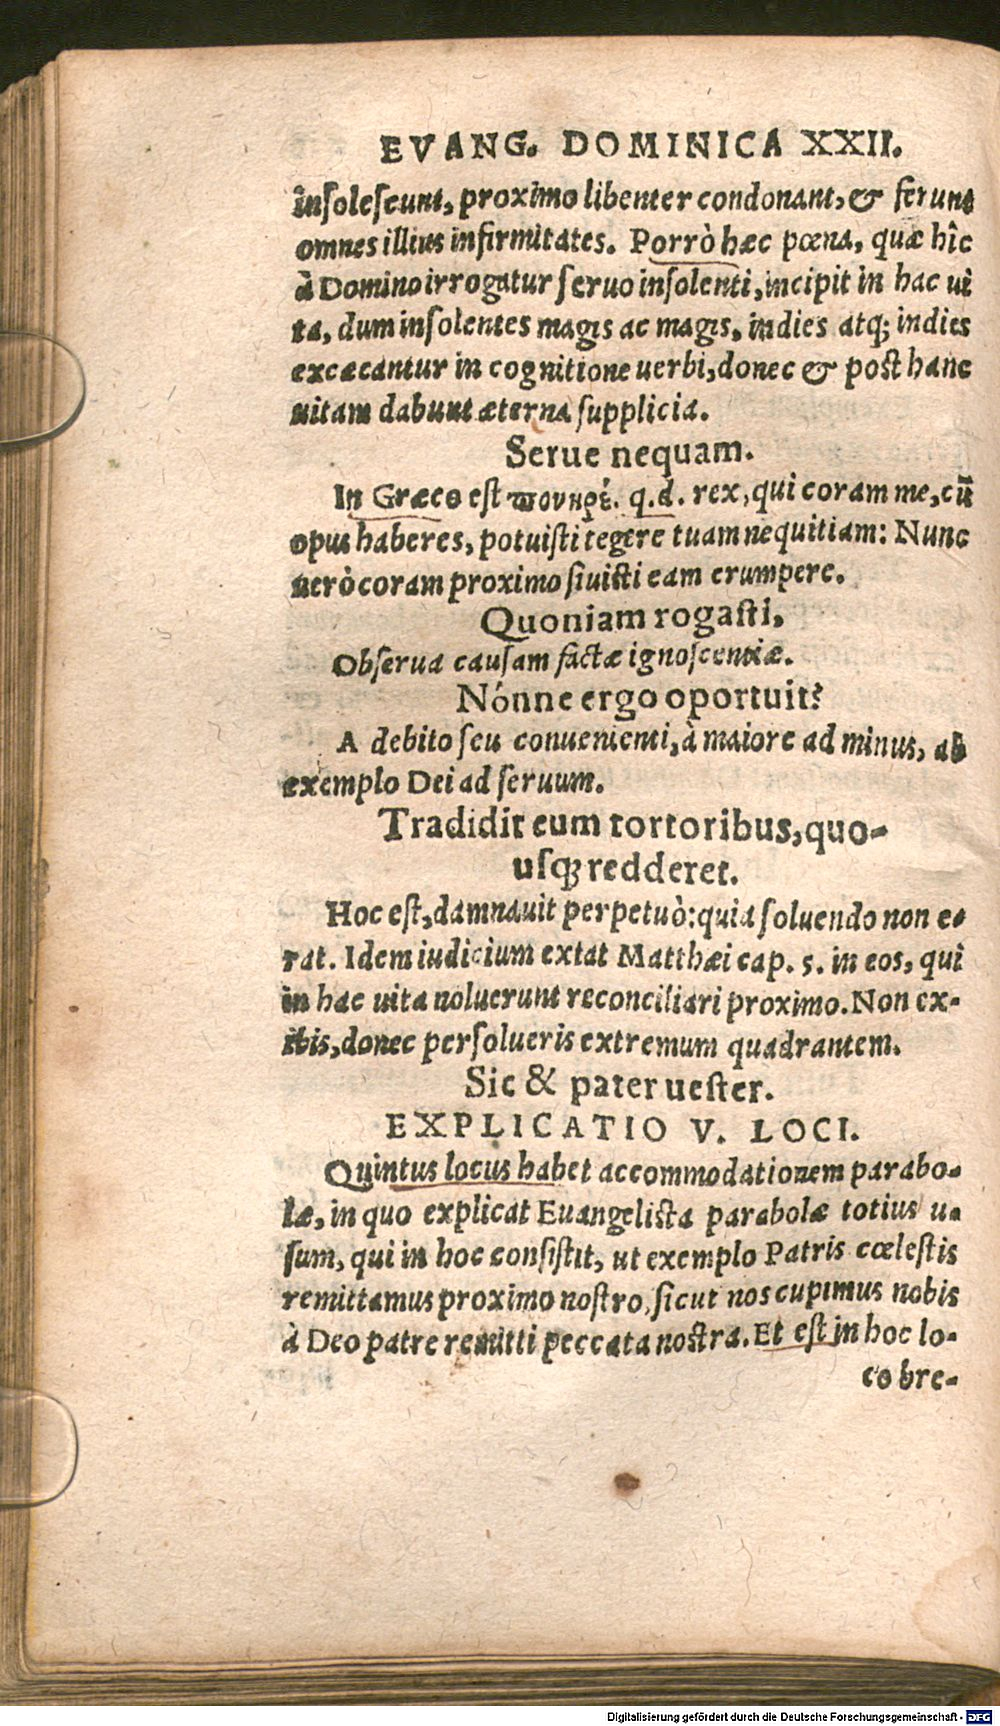 EVANG. DOMINICA XXII.
insolescunt, proximo libenter condonant, & ferunt
omnes illius infirmitates. Porrò hæc pœna, quæ hîc
à Domino irrogatur seruo insolenti, incipit in hac ui
ta, dum insolentes magis ac magis, indies atq; indies
excæcantur in cognitione uerbi, donec & post hanc
uitam dabunt æterna supplicia.
Serue nequam.
In Græco est πονηρέ. q.d. rex, qui coram me, cū
opus haberes, potuisti tegere tuam nequitiam: Nunc
uerò coram proximo siuisti eam erumpere.
Quoniam rogasti,
Obserua causam factæ ignoscentiæ.
Nónne ergo oportuit?
A debito seu conuenienti, à maiore ad minus, ab
exemplo Dei ad seruum.
Tradidit eum tortoribus, quo-
usq; redderet.
Hoc est, damnauit perpetuò: quia soluendo non e-
rat. Idem iudicium extat Matthæi cap. 5. in eos, qui
in hac uita noluerunt reconciliari proximo. Non ex-
ibis, donec persolueris extremum quadrantem.
Sic & pater uester.
EXPLICATIO V. LOCI.
Quintus locus habet accommodationem parabo-
læ, in quo explicat Euangelista parabolæ totius u-
sum, qui in hoc consistit, ut exemplo Patris cœlestis
remittamus proximo nostro, sicut nos cupimus nobis
à Deo patre remitti peccata nostra. Et est in hoc lo-
co bre-
Digitalisierung gefördert durch die Deutsche Forschungsgemeinschaft - DFG